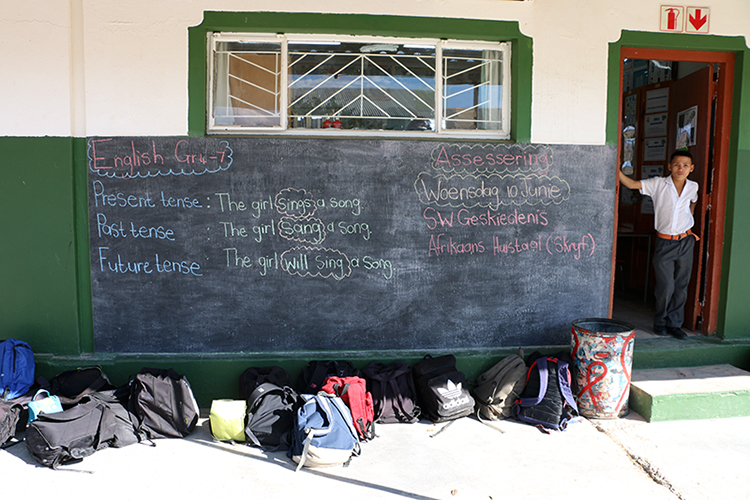 English Gr 4-7
Present tense : The girl sings a song.
Past tense : The girl sang a song.
Future tense : The girl will sing a song.
Assessering
Woensdag 10 Junie
S.W Geskiedenis
Afrikaans Huistaal (Skryf)
adidas